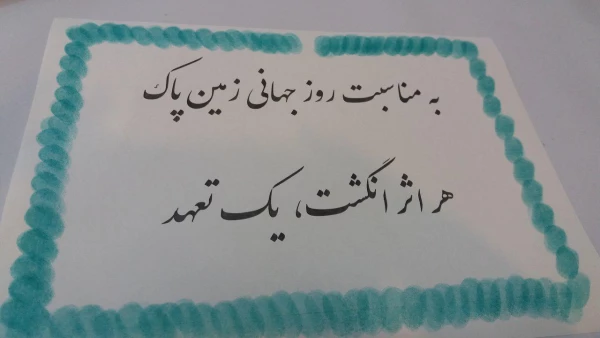 به مناسبت روز جهانی زمین پاک
هر اثر انگشت، یک تعهد